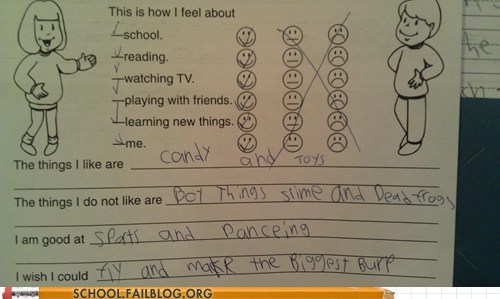 This is how I feel about
school.
reading.
watching TV.
playing with friends.
learning new things.
me.
The things I like are candy and Toys
The things I do not like are Boy Things slime and Dead frogs
I am good at sparts and Danceing
I wish I could fly and makR the Biggest Burp
SCHOOL.FAILBLOG.ORG